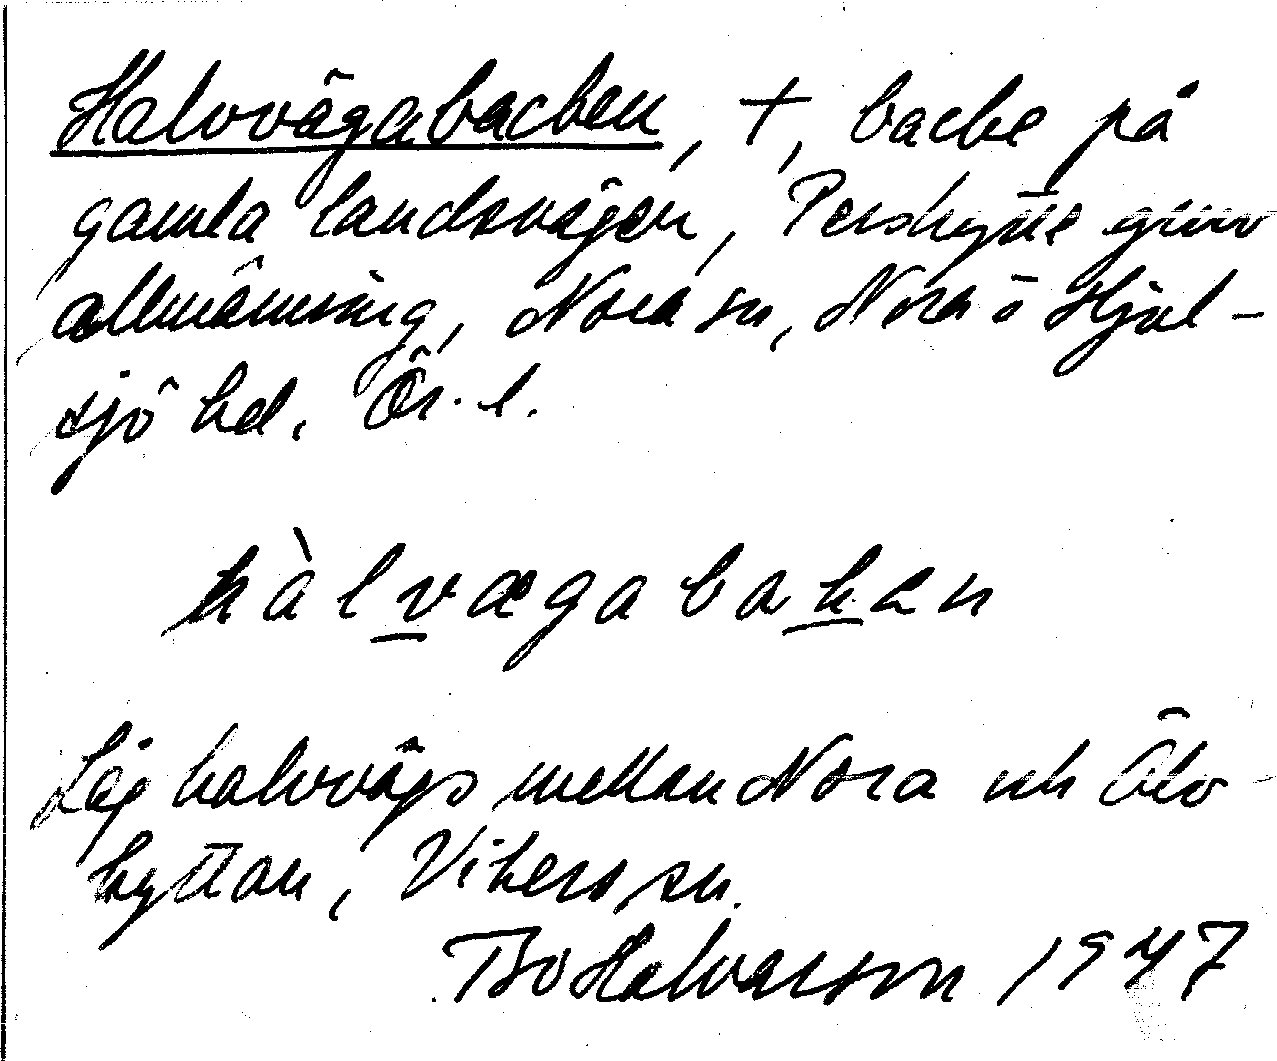 Halvvägabacken, †, backe på
gamla landsvägen, Pershytte gruv
allmänning, Nora sn, Nora o Hjul-
sjö hd, Ör. l.
hàlvægabaken
Låg halvvägs mellan Nora och Älv-
hyttan, Vikers sn.
Bo Halvarson 1947